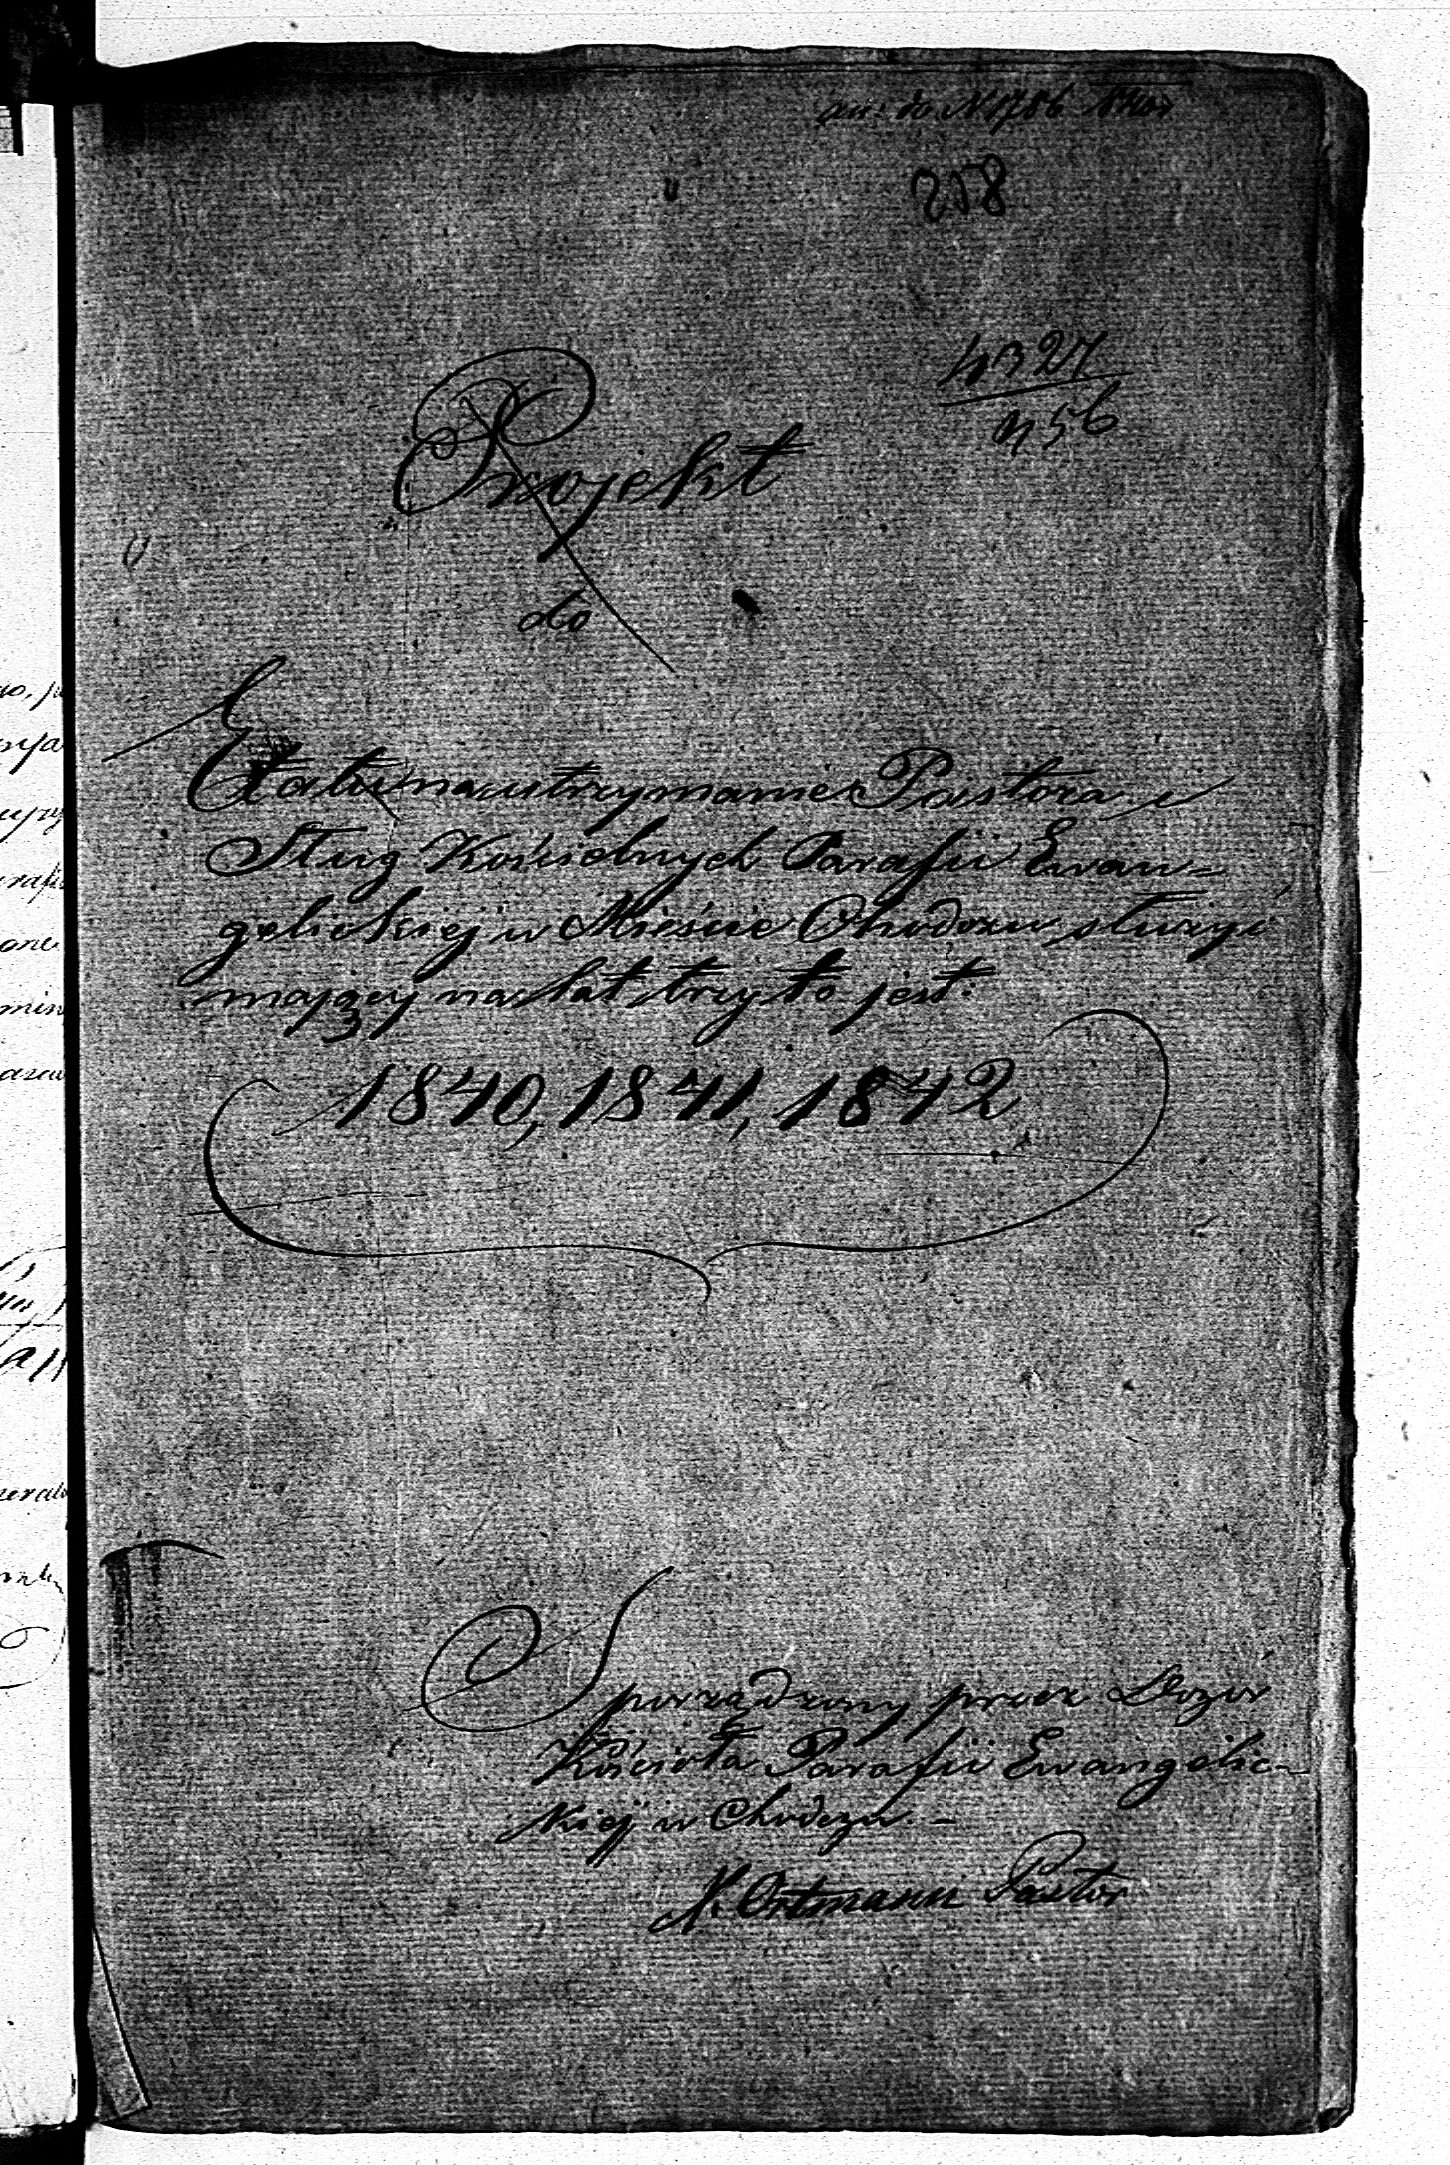 do N 1786
258
4327
456
Projekt
do
Etatu na utrzymanie Pastora i
Sług Kościelnych Parafii Ewan=
gelickiej w Mieście Chodczu służyć
mający na lat trzy to jest:
1840, 1841, 1842
Sporządzony przez Dozór
Kościoła Parafii Ewangelic-
kiej w Chodczu. -
Ortmann Pastor